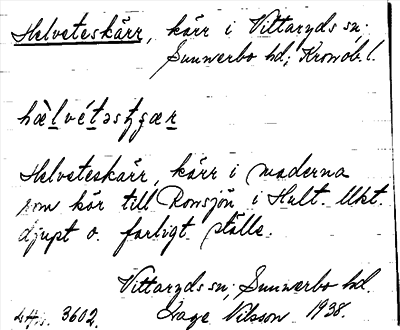 Helveteskärr, kärr i Vittaryds sn;
Sunnerbo hd; Kronob. l.
Helveteskärr, kärr i maderna
som hör till Romsjön i Hult. Ukt.
djupt o. farligt ställe.
Vittaryds sn; Sunnerbo hd.
3602. Tage Nilsson 1938.